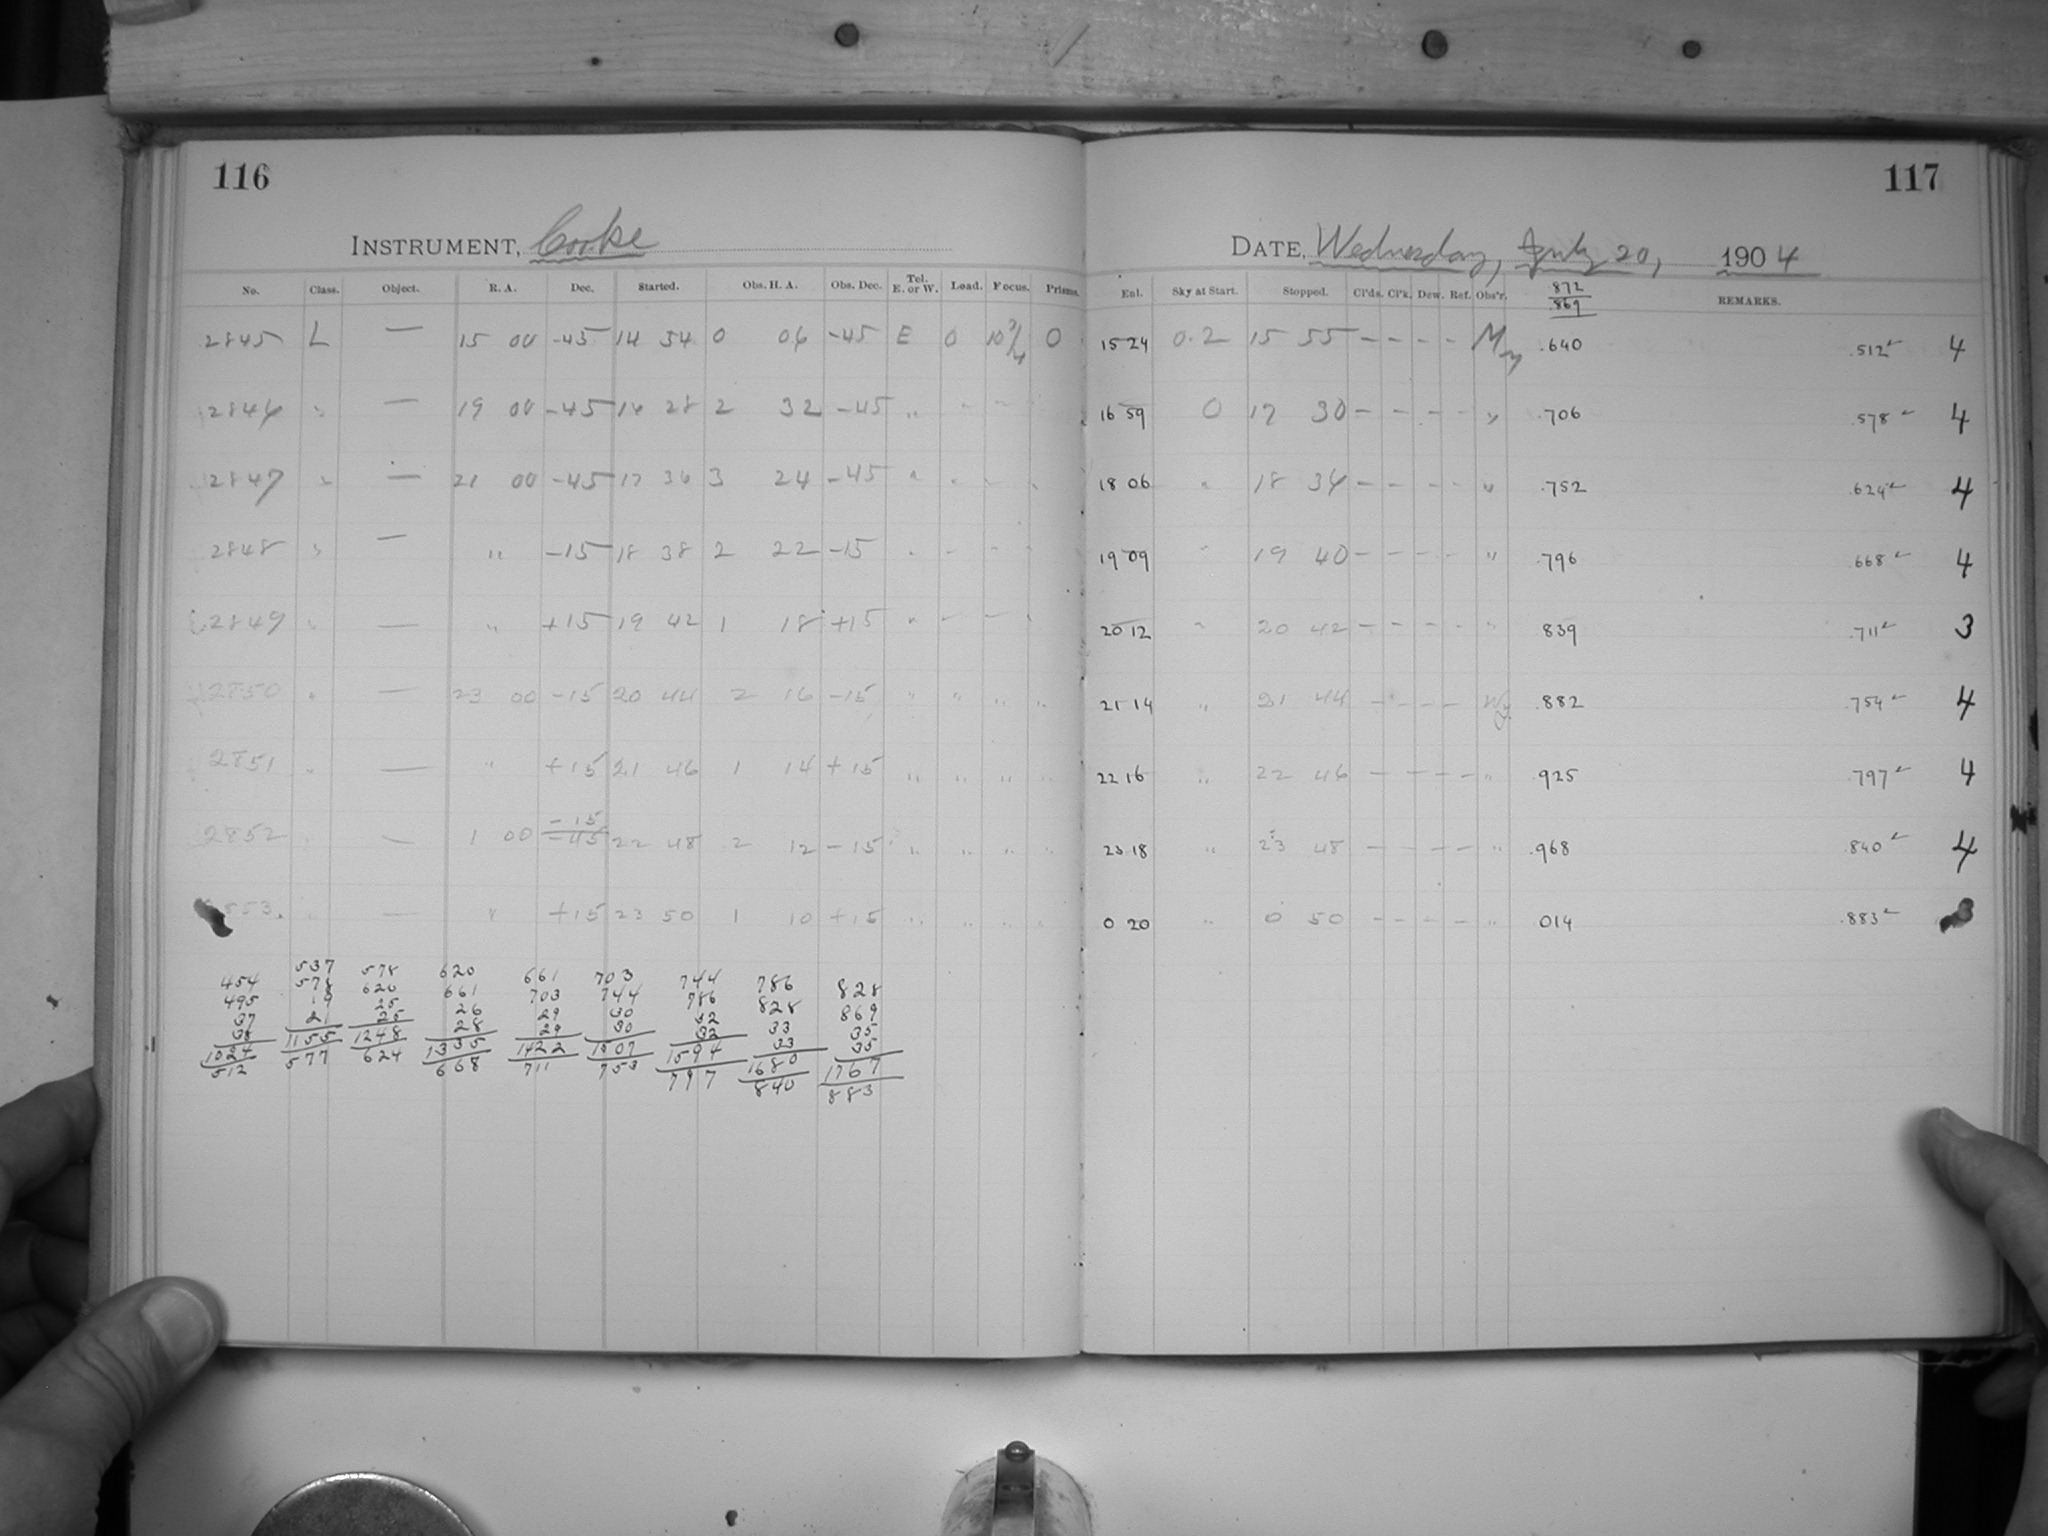 116
INSTRUMENT, Cooke
No. Class. Object. R. A. Dec. Started. Obs. H. A. Obs. Dec. Tel. E. or W. Load. Focus. Prisms.
2845 L — 15 00 -45 14 54 0 06 -45 E 0 10 3/4 0
2846 " — 19 00 -45 16 28 2 32 -45 " - - -
2847 " — 21 00 -45 17 36 3 24 -45 " " - "
2848 " — " -15 18 38 2 22 -15 " - - -
2849 " — " +15 19 42 1 18 +15 " - - "
2850 " — 23 00 -15 20 44 2 16 -15 " " " "
2851 " — " +15 21 46 1 14 +15 " " " "
2852 " — 1 00 -15 -45 22 48 2 12 -15 " " " "
853. " — " +15 23 50 1 10 +15 " " " "
537 578 620 661 703 744 786 828
454 578 620 661 703 744 786 828 869
495 19 25 26 29 30 32 33 35
37 21 25 28 29 30 32 33 35
38 1155 1248 1335 1422 1507 1594 1680 1767
1024 577 624 668 711 753 797 840 883
512
117
DATE, Wednesday, July 20, 1904
Enl. Sky at Start. Stopped. Cl'ds. Cl'k. Dew. Ref. Obs'r. 872 869 REMARKS.
15 24 0.2 15 55 - - - - My .640 .512 4
16 59 0 17 30 - - - - " .706 .578 4
18 06 " 18 34 - - - - " .752 .624 4
19 09 " 19 40 - - - - " .796 .668 4
20 12 " 20 42 - - - - " 839 .711 3
21 14 " 21 44 - - - - .882 .754 4
22 16 " 22 46 - - - - " .925 .797 4
23 18 " 23 48 - - - - " .968 .840 4
0 20 " 0 50 - - - - " .014 .883 3